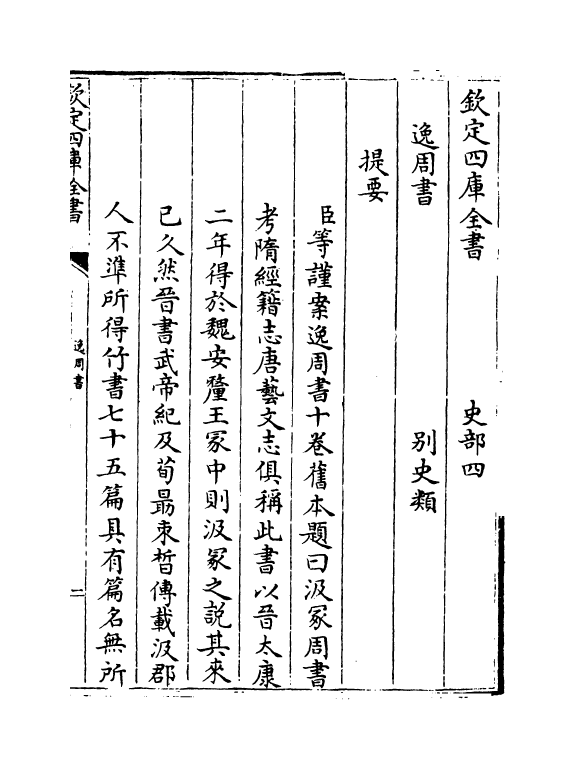 欽定四庫全書 史部四
逸周書 別史類
提要
臣等謹案逸周書十卷舊本題曰汲冢周書
考隋經籍志唐藝文志俱稱此書以晉太康
二年得於魏安釐王冢中則汲冢之說其來
已久然晉書武帝紀及荀勗束晳傳載汲郡
人不準所得竹書七十五篇具有篇名無所
欽定四庫全書
逸周書
二